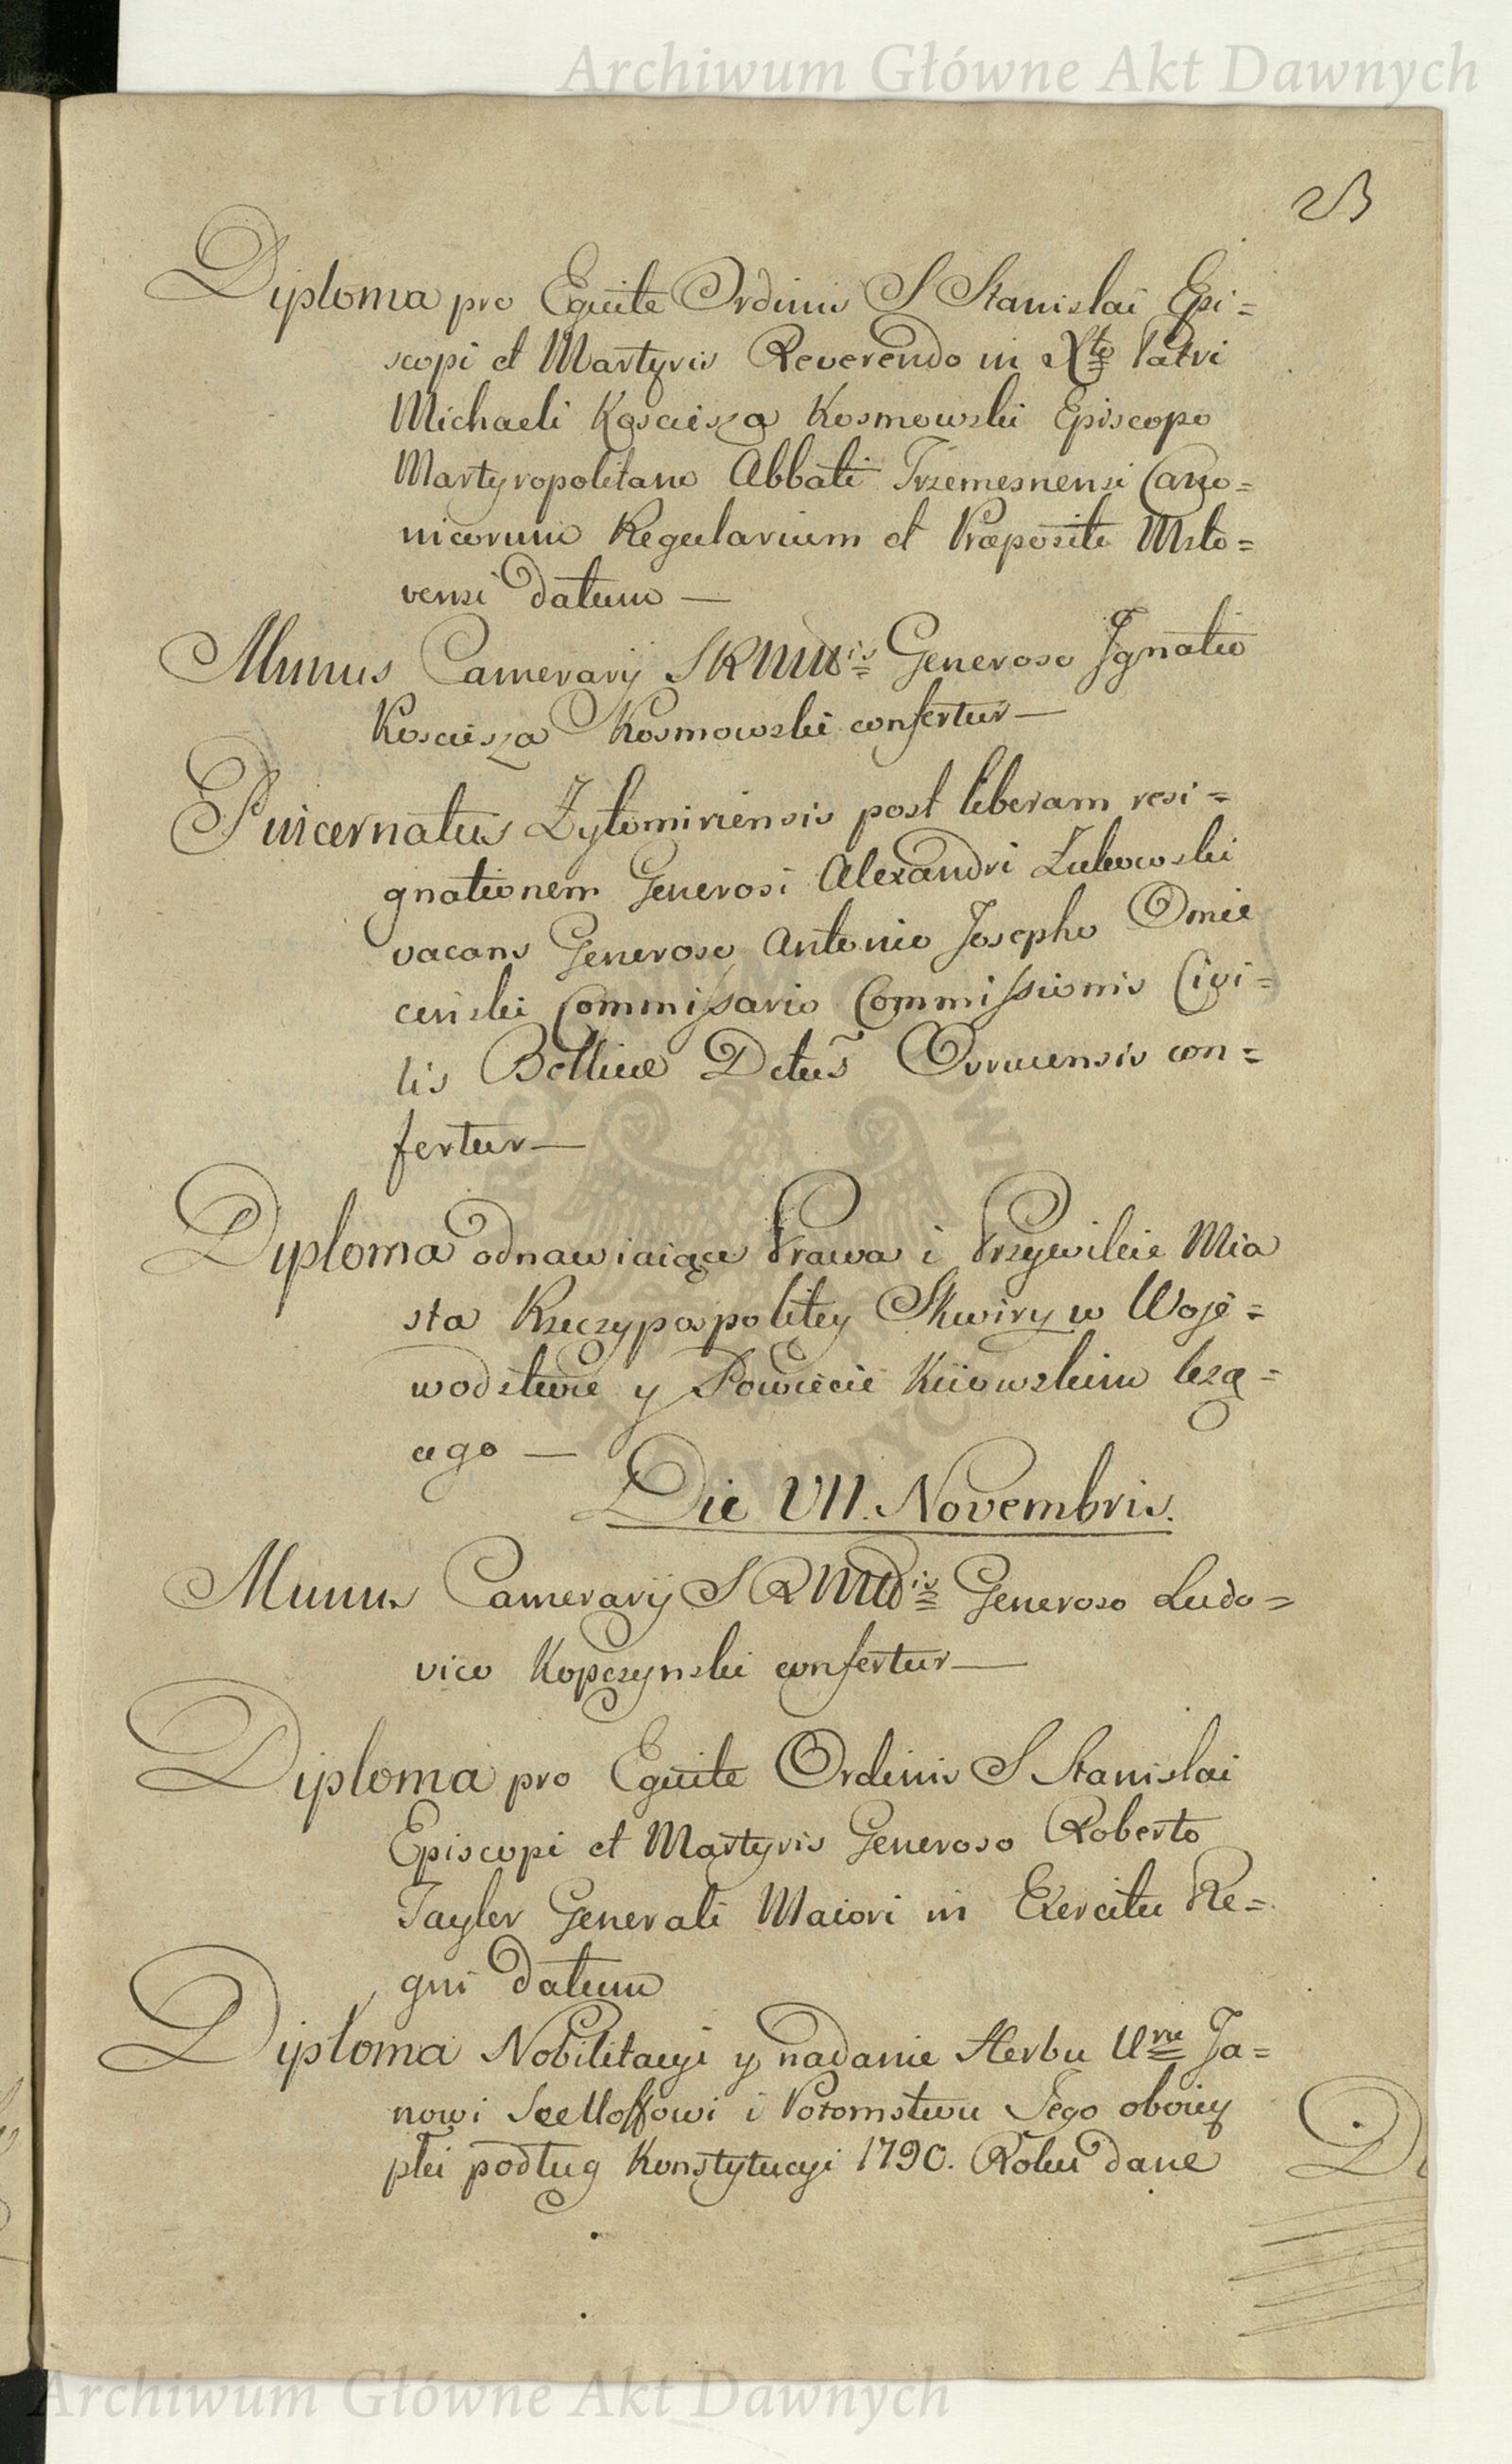 Archiwum Główne Akt Dawnych
23
Diploma pro Equite Ordinis S Stanislai Epi=
scopi et Martyris Reverendo in Xto Patri
Michaeli Kosciesza Kosmowski Episcopo
Martyropolitano Abbati Trzemesnensi Cano=
nicorum Regularium et Præposito Msto=
vensi datum —
Munus Camerarij SRMttis Generoso Ignatio
Kosciesza Kosmowski confertur —
Pincernatus Zytomiriensis post liberam resi=
gnationem Generosi Alexandri Zukowski
vacans Generoso Antonio Josepho Omie
cinski Commissario Commissionis Civi=
lis Bellicæ Dctus Owrucensis con=
fertur —
Diploma odnawiaiące Prawa i Przywileie Mia
sta Rzeczypospolitey Skwiry w Woje=
wodztwie y Powiecie Kiiowskim leżą=
cego —
Die VII. Novembris.
Munus Camerarij SRMttis Generoso Ludo=
vico Kopczynski confertur —
Diploma pro Equite Ordinis S Stanislai
Episcopi et Martyris Generoso Roberto
Tayler Generali Maiori in Exercitu Re=
gni datum
Diploma Nobilitacyi y nadanie Herbu Urne Ja=
nowi i Potomstwu Jego oboiey
płci podług Konstytucyi 1790. Roku dane
Di
Archiwum Główne Akt Dawnych